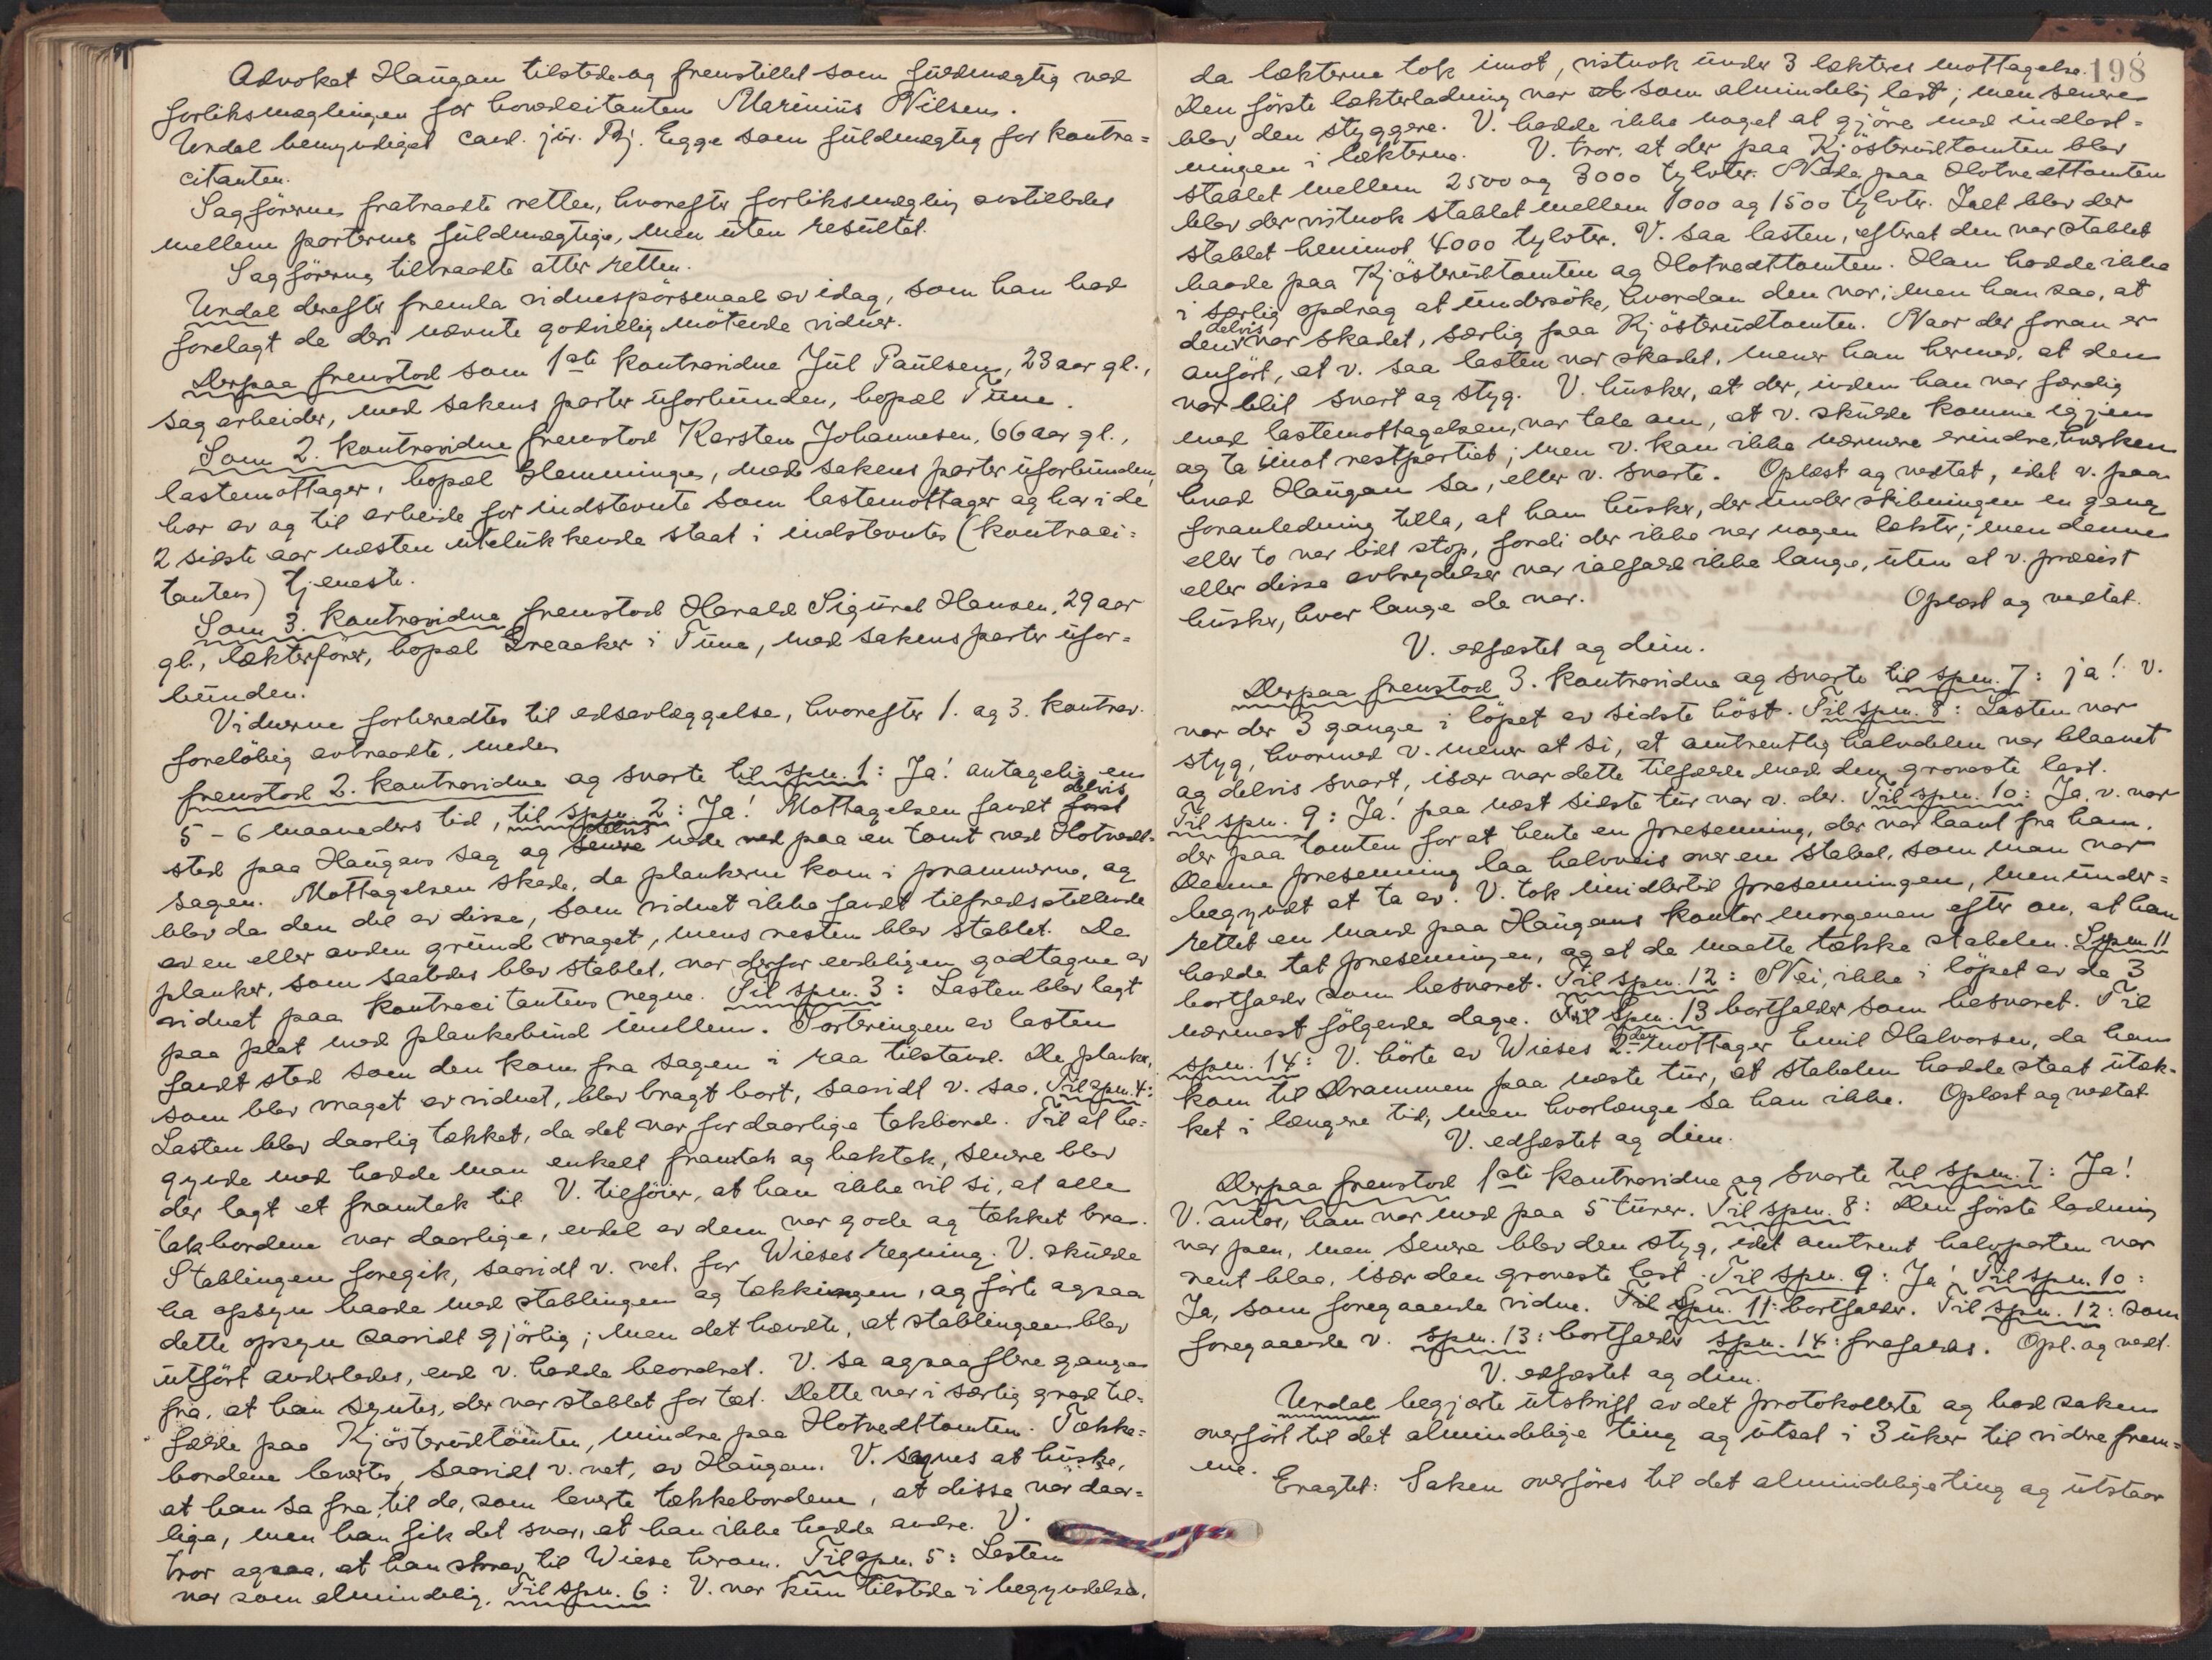 Advokat Haugan tilstede og fremstillet som fuldmægtig ved
forliksmæglingen for hovedcitanten Marinius Nilsen.
Undal bemyndiget cand. jur. Bj. Egge som fuldmægtig for kontra=
citanten.
Sagførerne fratraadte retten, hvorefter forliksmægling avstilledes
mellem parternes fuldmægtige, men uten resultat.
Sagførerne tiltraadte atter retten.
Undal derefter fremla vidnespörsmaal av idag, som han bad
forelagt de deri nævnte godvillig mötende vidner.
Derpaa fremstod som 1ste kontravidne Jul Paulsen, 23 aar gl.,
sagarbeider, med sakens parter uforbunden, bopæl Tune.
Som 2. kontravidne fremstod Karsten Johannesen, 66 aar gl.,
lastemottager, bopæl Glemminge, med sakens parter uforbunden,
har av og til arbeide for indstevnte som lastemottager og har i de
2 sidste aar næsten utelukkende staat i indstevntes (kontraci=
tantens) tjeneste.
Som 3. kontravidne fremstod Harald Sigurd Hansen, 29 aar
gl., lækterförer, bopæl Greaaker i Tune, med sakens parter ufor=
bunden.
Vidnerne forberedtes til edsavlæggelse, hvorefter 1. og 3. kontrav.
forelöbig avtraadte, medens
fremstod 2. kontravidne og svarte til spm. 1: Ja! antagelig en
5 - 6 maaneders tid, til spm. 2: Ja! Mottagelsen fandt först delvis
sted paa Haugans sag og senere delvis nede ved paa en tomt ved Hotvedt-
sagen. Mottagelsen skede, da plankerne kom i prammerne, og
blev da den del av disse, som vidnet ikke fandt tilfredsstillende
av en eller anden grund vraget, mens resten blev stablet. De
planker, som saaledes blev stablet, var derfor endeligen godtagne av
vidnet paa kontracitantens vegne. Til spm. 3: Lasten blev lagt
paa plat med plankebund imellem. Sorteringen av lasten
fandt sted som den kom fra sagen i raa tilstand. De planker,
som blev vraget av vidnet, blev bragt bort, saavidt v. saa. Til spm. 4:
Lasten blev daarlig tækket, da det var for daarlige takbord. Til at be=
gynde med hadde man enkelt framtak og baktak, senere blev
der lagt et framtak til. V. tilföier, at han ikke vil si, at alle
takbordene var daarlige, endel av dem var gode og tækket bra.
Stablingen foregik, saavidt v. vet. for Wieses regning. V. skulde
ha opsyn baade med stablingen og tækkingen, og förte ogsaa
dette opsyn saavidt gjörlig; men det hændte, at stablingen blev
utfört anderledes, end v. hadde beordret. V. sa ogsaa flere gange
fra, at han syntes, der var stablet for tæt. Dette var i særlig grad til=
fælde paa Kjösterudtomten, mindre paa Hotvedttomten. Tække=
bordene levertes, saavidt v. vet, av Haugan. V. synes at huske,
at han sa fra til de, som leverte tækkebordene, at disse var daar=
lige, men han fik det svar, at han ikke hadde andre. V.
tror ogsaa, at han skrev til Wiese herom. Til spm. 5: Lasten
var som almindelig. Til spm. 6: V. var kun tilstede i begyndelsen,
198
da lækterne tok imot, vistnok under 3 lækteres mottagelse.
Den förste lækterladning var at som almindelig last; men senere
blev den styggere. V. hadde ikke noget at gjöre med indlast=
ningen i lækterne. V. tror, at der paa Kjösterudtomten blev
stablet mellem 2500 og 3000 tylvter. Nede paa Hotvedttomten
blev der vistnok stablet mellem 1000 og 1500 tylvter. Ialt blev der
stablet henimot 4000 tylvter. V. saa lasten, efterat den var stablet
baade paa Kjösterudtomten og Hotvedttomten. Han hadde ikke
i særlig opdrag at undersöke, hvordan den var; men han saa, at
den delvis var skadet, særlig paa Kjösterudtomten. Naar der foran er
anfört, at v. saa lasten var skadet, mener han hermed, at den
var blit svart og styg. V. husker, at der, inden han var færdig
med lastemottagelsen, var tale om, at v. skulde komme igjen
og ta imot restpartiet; men v. kan ikke nærmere erindre, hverken
hvad Haugan sa, eller v. svarte. Oplæst og vedtat, idet v. paa
foranledning tilla, at han husker, der under skibningen en gang
eller to var litt stop, fordi der ikke var nogen lækter; men denne
eller disse avbrydelser var ialfald ikke lange, uten at v. præcist
husker, hvor lange de var. Oplæst og vedtat.
V. edfæstet og dim.
Derpaa fremstod 3. kontravidne og svarte til spm. 7: ja! v.
var der 3 gange i löpet av sidste höst. Til spm. 8: Lasten var
styg, hvormed v. mener at si, at omtrentlig halvdelen var blaanet
og delvis svart, især var dette tilfælde med den groveste last.
Til spm. 9: Ja! paa næst sidste tur var v. der. Til spm. 10: Ja, v. var
der paa tomten for at hente en presenning, der var laant fra ham.
Denne presenning laa halvveis over en stabel, som man var
begyndt at ta av. V. tok imidlertid presenningen, men under=
rettet en mand paa Haugans kontor morgenen efter om, at han
hadde tat presenningen, og at de maatte tække stabelen. Spm. 11
bortfalder som besvaret. Til spm. 12: Nei, ikke i löpet av de 3
nærmest fölgende dage. Til Spm. 13 bortfalder som besvaret. Til
spm. 14: V. hörte av Wieses 2den mottager Emil Halvorsen, da han
kom til Drammen paa næste tur, at stabelen hadde staat utæk-
ket i længere tid, men hvorlænge sa han ikke. Oplæst og vedtat
V. edfæstet og dim.
Derpaa fremstod 1ste kontravidne og svarte til spm. 7: Ja!
V. antar, han var med paa 5 turer. Til spm. 8: Den förste ladning
var pen, men senere blev den styg, idet omtrent halvparten var
rent blaa, især den groveste last. Til spm. 9: Ja! Til spm. 10:
Ja, som foregaaende vidne. Til spm. 11: bortfalder. Til spm. 12: som
foregaaende v. spm. 13: bortfalder spm. 14: frafaldes. Opl. og vedt.
V. edfæstet og dim.
Undal begjærte utskrift av det protokollerte og bad saken
overfört til det almindelige ting og utsat i 3 uker til videre frem=
me.
Eragtet: Saken overföres til det almindelige ting og utstaar